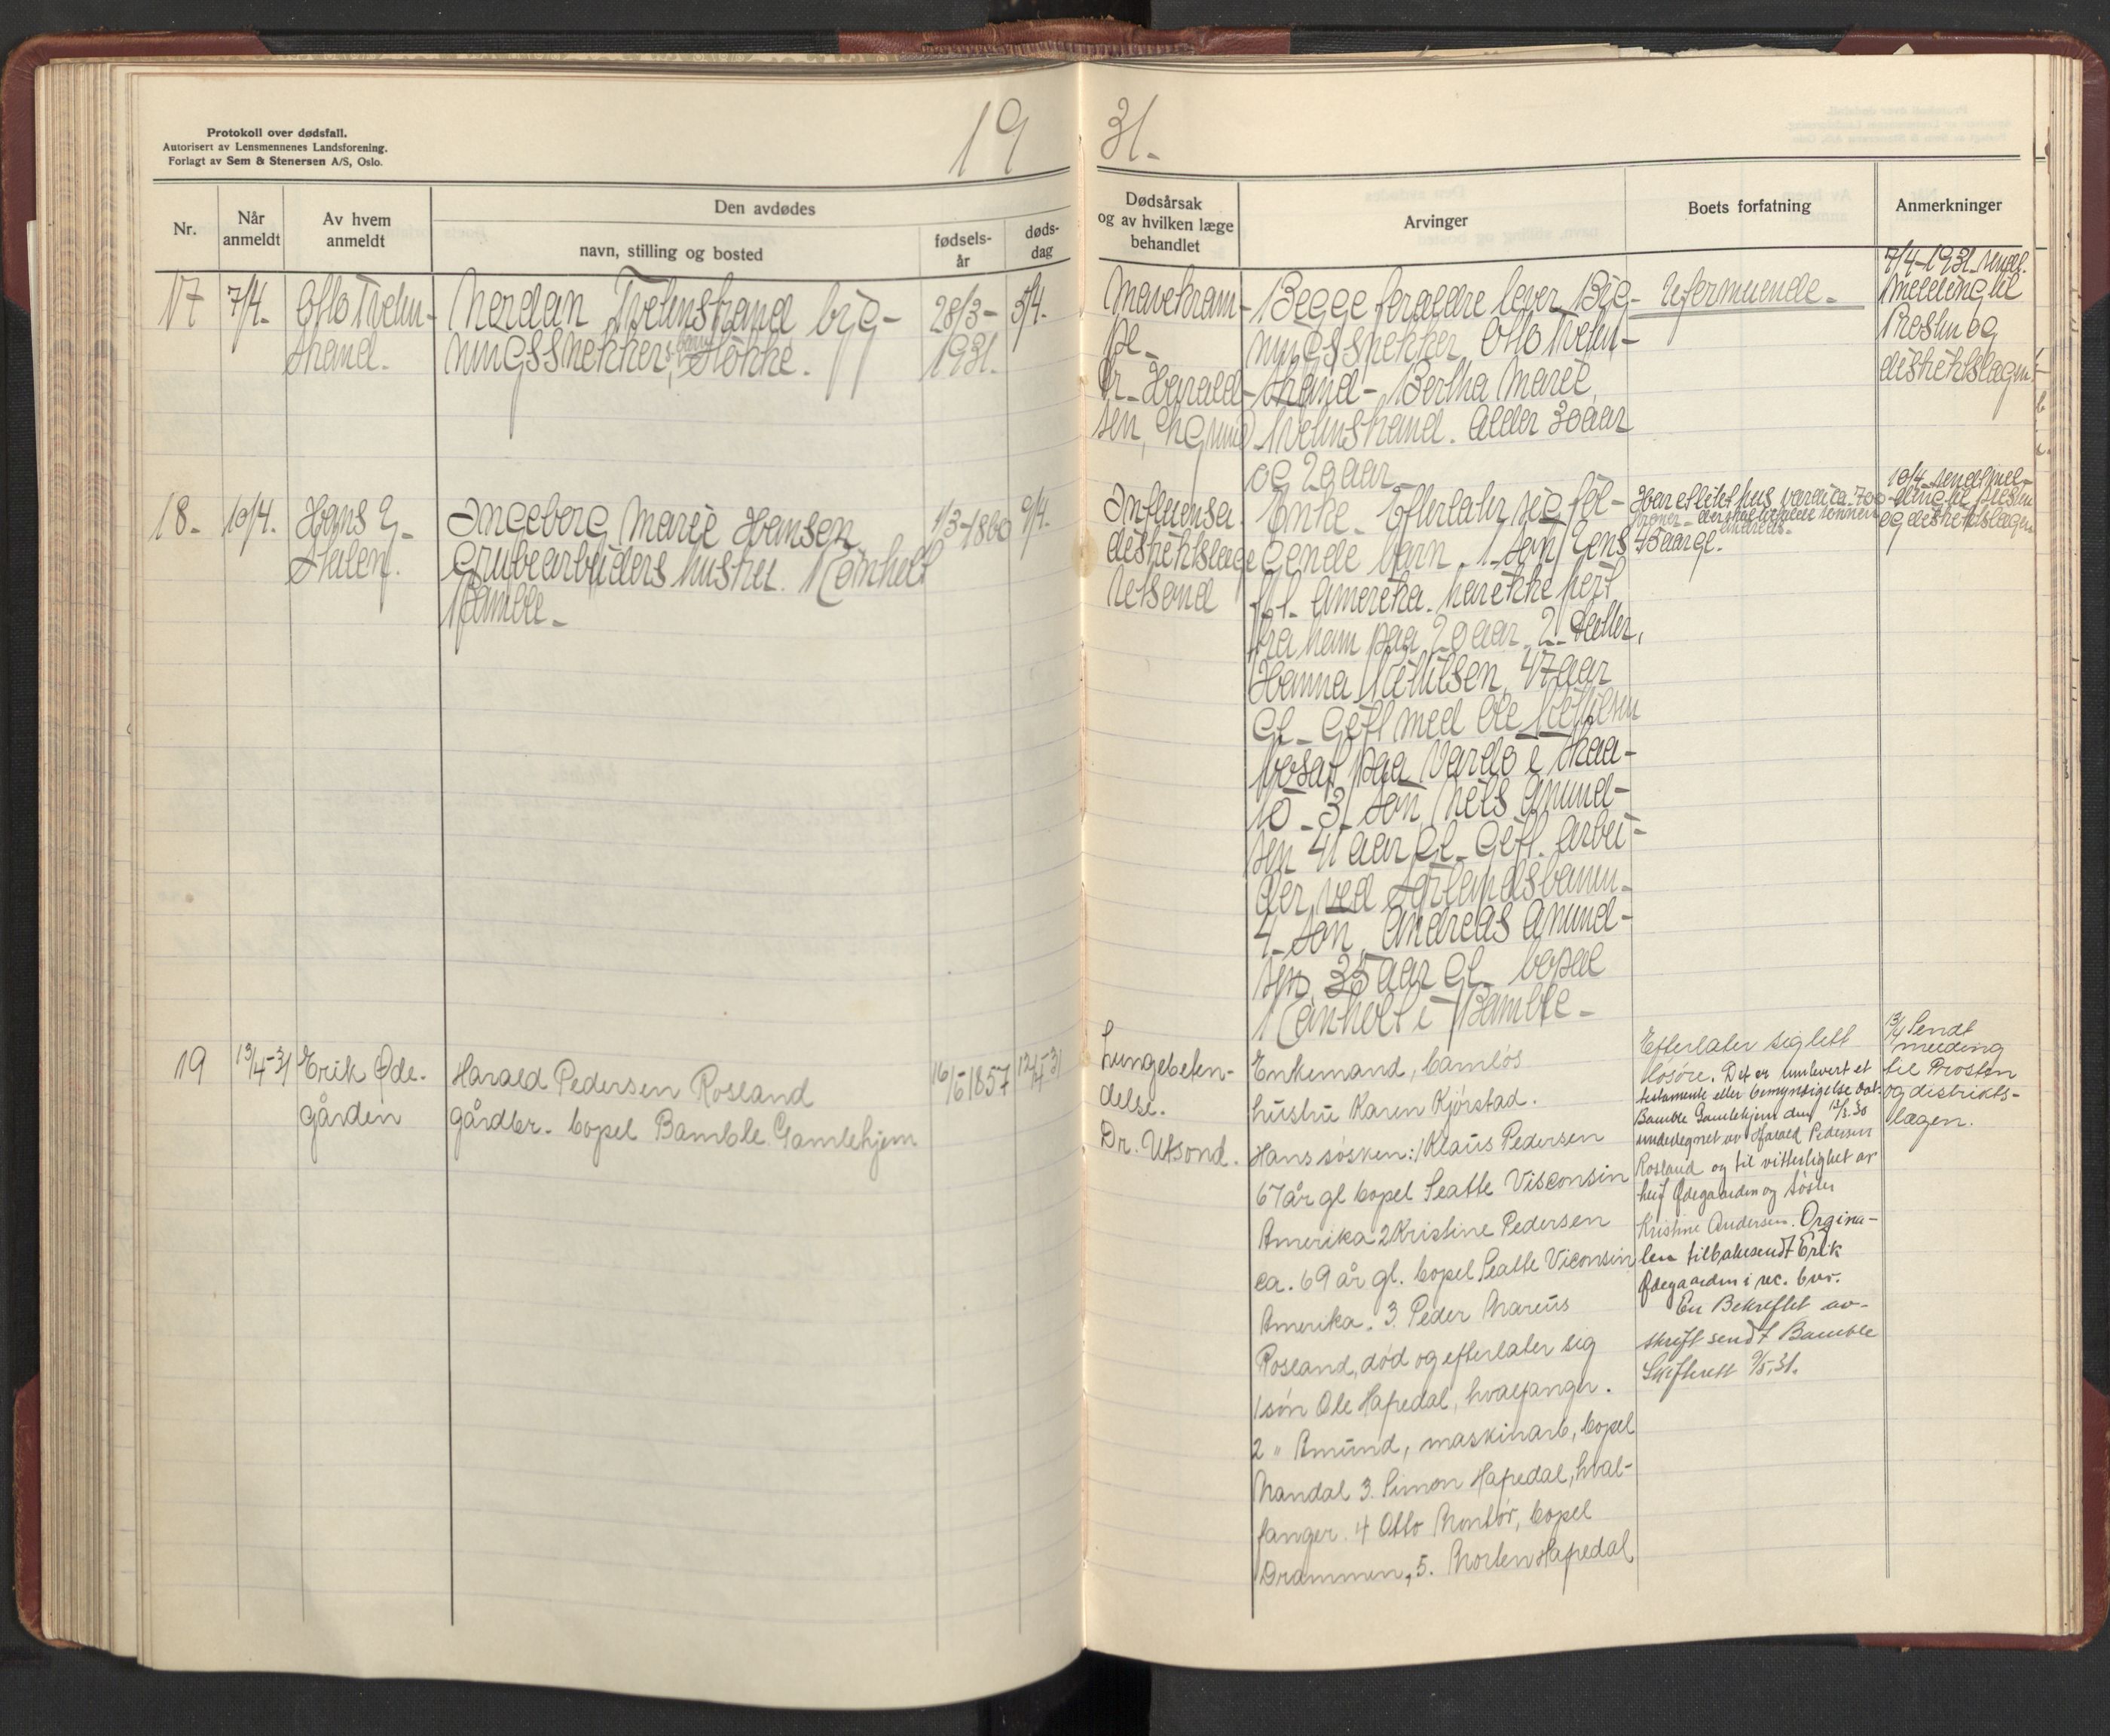 Protokoll over dødsfall.
Autorisert av Lensmennenes Landsforening.
Forlagt av Sem & Stenersen A/S, Oslo.
19
31.
Nr.
Når
anmeldt
Av hvem
anmeldt
Den avdødes
navn, stilling og bosted
fødsels-
år
døds-
dag
Dødsårsak
og av hvilken læge
behandlet
Arvinger
Boets forfatning
Anmerkninger
17
7/4.
Otto Tveln-
strand.
Nordan Tvelnstrand byg-
ningssnekkers barn, Stokke.
28/3-
1931.
5/4.
Mavekram-
pe -
Dr. Harald-
sen,
Begge foraldre lever Byg-
ningssnekker Otto Tveln-
strand - Bertha Marie
Tvelnstrand. Alder 30 aar
og 29 aar
Uformuende.
7/4-1931 sendt
melding til
Prosten og
distriktslægen.
18.
10/4.
Hans E.
Stalen.
Ingeborg Marie Hansen
Grubearbeiders hustru. Rønholt
Bamble.
1/3-1860
9/4.
Influensa.
distriktslæge
Utsond
Enke. Efterlater sig føl-
gende barn. 1. Søn Jens
i Amerika. har ikke hørt
fra ham paa 20 aar. 2. datter,
Hanna Kittilsen, 47 aar
gl. Gift med Ole Kittilsen
bosat paa Vardø i Skaa-
tø. 3. Søn Nils Amund-
sen 41 aar gl. Gift. Arbei-
der ved Sørlandsbanen.
4. Søn, Andreas Amund-
sen 35 aar gl. bopæl
Rønholt i Bamble.
Har et litet hus, værdi ca. 700
kroner - der skal tilfalde sønnen
Andreas.
35 aar gl.
10/4 sendt mel-
ding til prosten
og distriktslægen
19
13/4-31
Erik Øde-
gården
Harald Pedersen Rosland
gårdbr. bopel Bamble Gamlehjem
16/6 1857
12/4-31
Lungebeten-
delse.
Dr. Utsond.
Enkemand, barnløs
hustru Karen Kjørstad.
Hans søsken: 1 Klaus Pedersen
67 år gl bopel Seatle Visconsin
Amerika 2 Kristine Pedersen
ca. 69 år gl. bopel Seatle Viconsin
Amerika. 3. Peder Mareus
Rosland, død og efterlater sig
1 søn Ole Hafredal, hvalfanger.
2 " Amund, maskinarb, bopel
Mandal 3. Simon Hafredal, hval-
fanger. 4 Otto Montør, bopel
Drammen, 5. Morten Hafredal
Efterlater sig lett
løsøre. Det er innlevert et
testamente eller bemyndigelse dat.
Bamble Gamlehjem den 13/3.30
undertegnet av Harald Pedersen
Rosland og til vitterlighet av
Leif Ødegaarden og søster
Kristine Andersen. Orgina-
len tilbakesendt Erik
Ødegaarden i rec. brev.
En Bekreftet av-
skrift sendt Bamble
Skifterett 9/5.31.
13/4 Sendt
melding
til Prosten
og distrikts-
lægen.